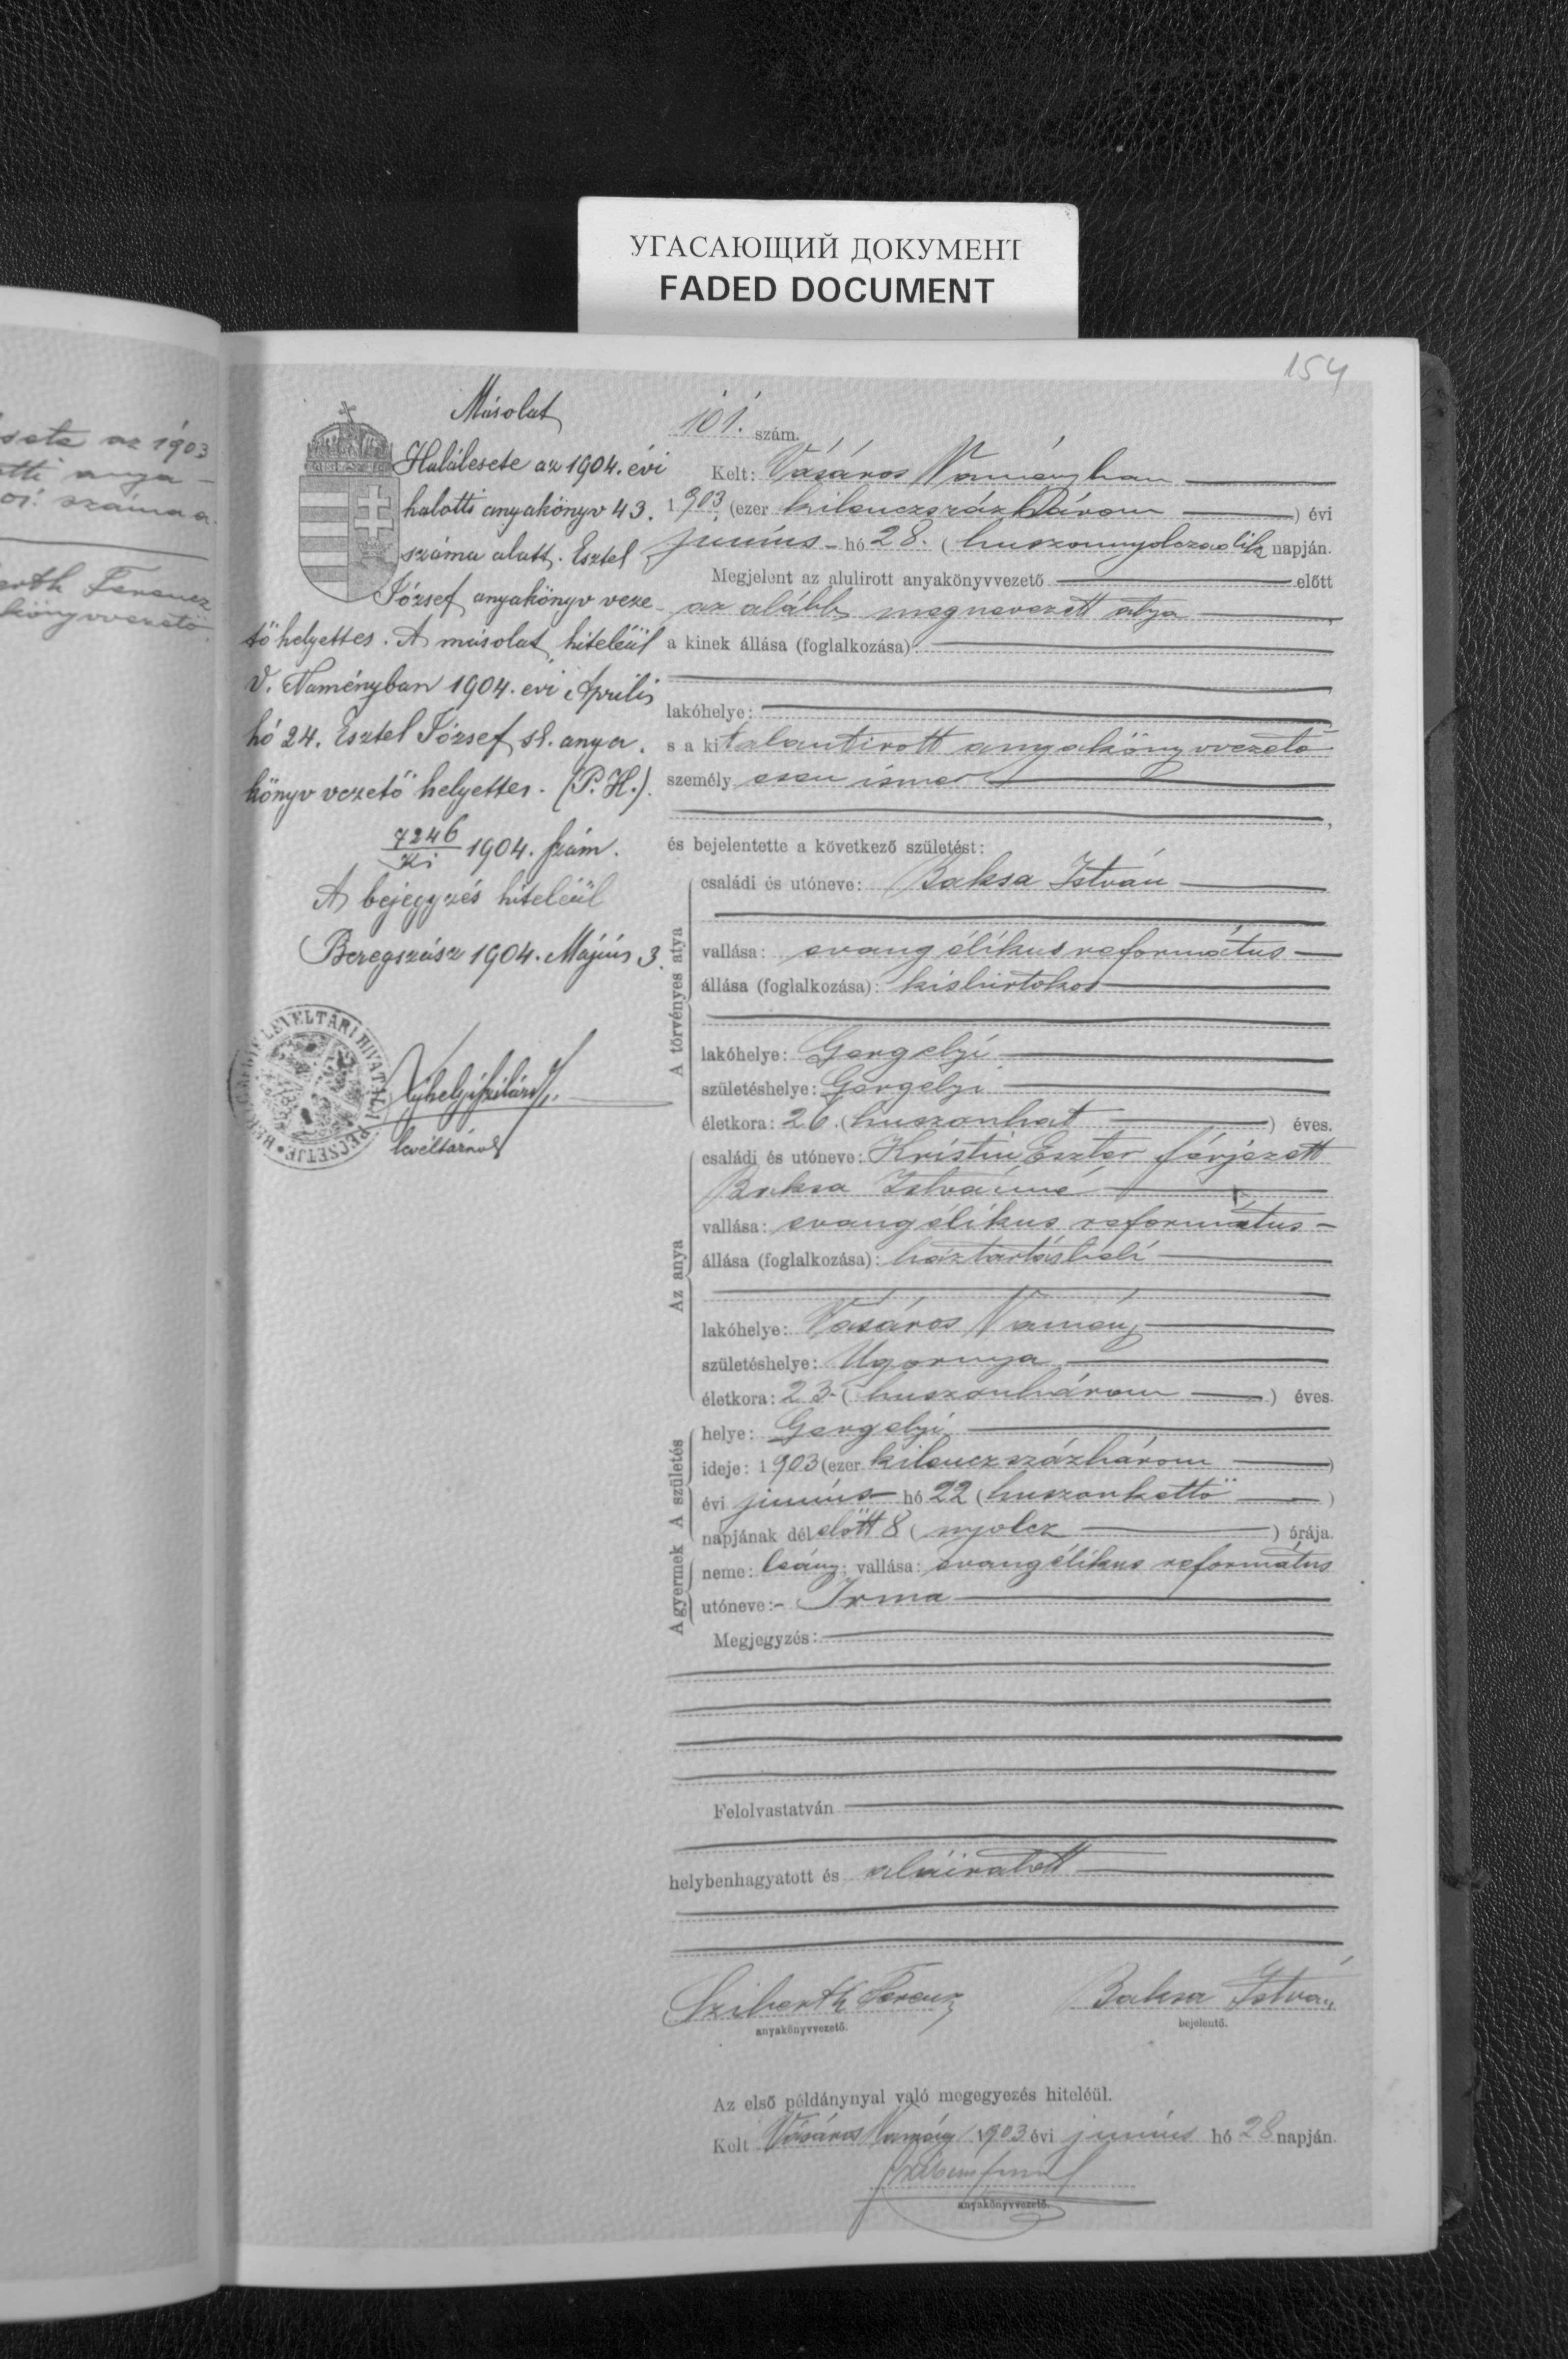 УГАСАЮЩИЙ ДОКУМЕНТ
FADED DOCUMENT
154
az 1903
száma a
Ferencz
könyvvezető
Másolat
Halálesete az 1904. évi
halotti anyakönyv 43.
száma alatt. Esztel
József anyakönyv veze-
tő helyettes. A másolat hiteléül
V. Naményban 1904. évi Április
hó 24. Esztel József sk. anya-
könyv vezető helyettes. (P. H.).
7246/ki 1904. szám.
A bejegyzés hiteléül
Beregszász 1904. Május 3.
LEVÉLTÁRI HIVATALI PECSÉTJE
levéltárnok
101. szám.
Kelt: Vásáros Naményban
1903. (ezer kilenczszázhárom) évi
junius hó 28. (huszonnyolczadik) napján.
Megjelent az alulirott anyakönyvvezető előtt
az alább megnevezett atya
a kinek állása (foglalkozása):
lakóhelye:
s a kit alantirott anyakönyvvezető
személyesen ismer
és bejelentette a következő születést:
A törvényes atya
családi és utóneve: Baksa István
vallása: evangélikus református
állása (foglalkozása): kisbirtokos
lakóhelye: Gergelyi
születéshelye: Gergelyi
életkora: 26. (huszonhat) éves.
Az anya
családi és utóneve: Kristin Eszter férjezett
Baksa Istvánné
vallása: evangélikus református
állása (foglalkozása): háztartásbeli
lakóhelye: Vásáros Namény
születéshelye: Ugornya
életkora: 23. (huszonhárom) éves.
A születés
helye: Gergelyi
ideje: 1903 (ezer kilenczszázhárom)
évi junius hó 22 (huszonkettő)
napjának délelőtt 8 (nyolcz) órája.
A gyermek
neme: leány; vallása: evangélikus református
utóneve: Irma
Megjegyzés:
Felolvastatván
helybenhagyatott és aláiratott
Sziberth Ferencz Baksa István
anyakönyvvezető. bejelentő.
Az első példánynyal való megegyezés hiteléül.
Kelt Vásáros Namény 1903 évi junius hó 28 napján.
anyakönyvvezető.